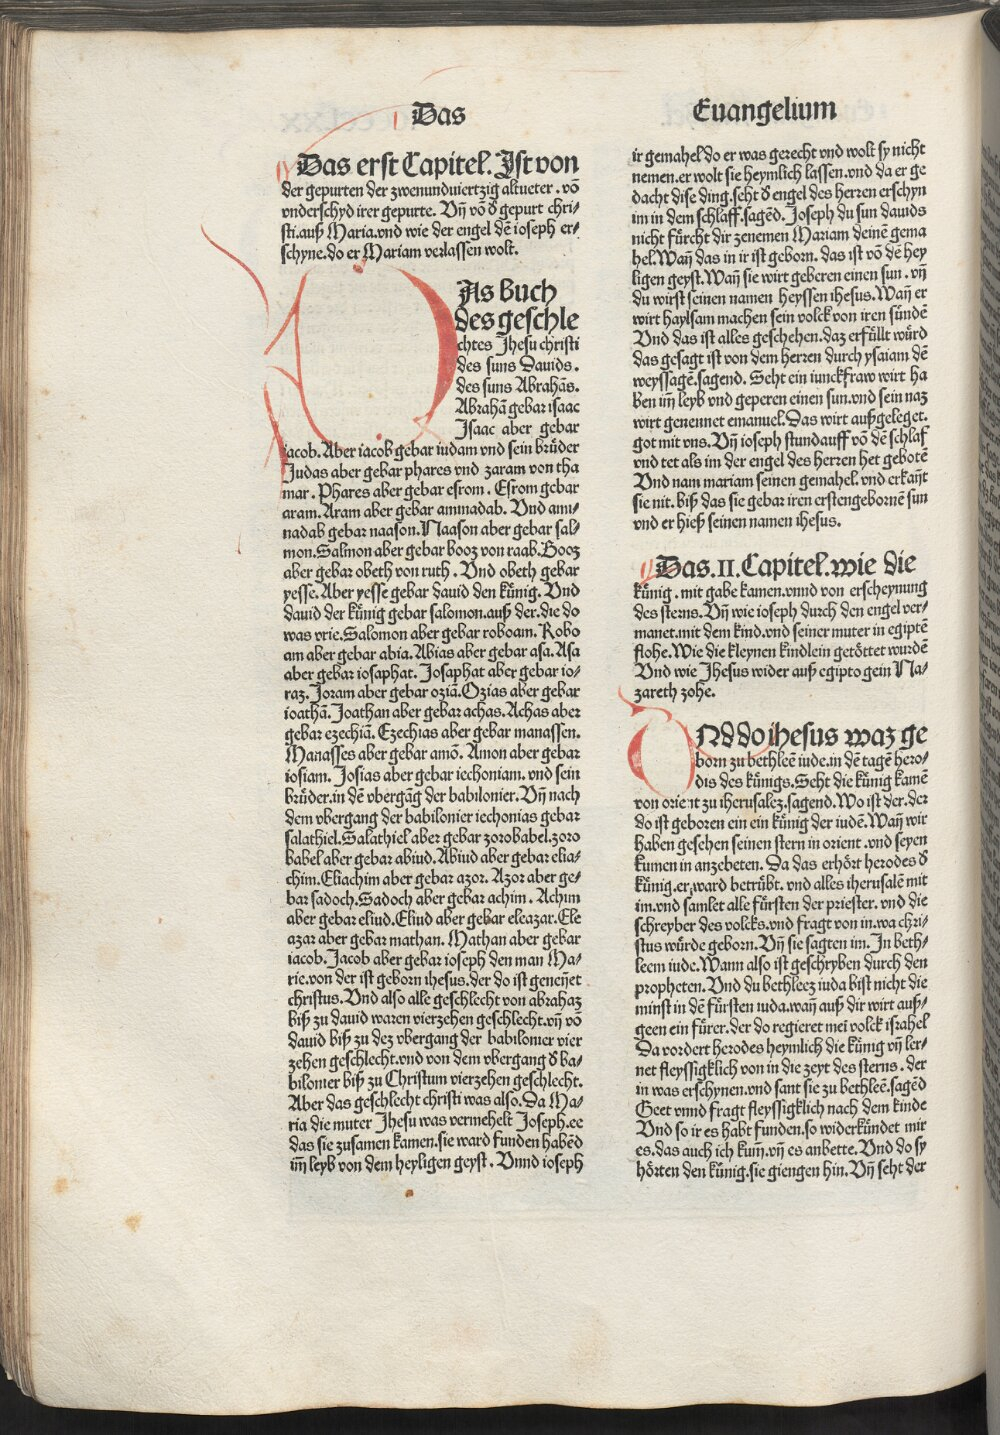 Das
Euangelium
Das erst Capitel. Ist von
der gepurten der zwenundviertzig altueter. võ
vnderschyd irer gepurte. Vñ võ d gepurt chri-
sti. auß Maria. vnd wie der engel dẽ ioseph er-
schyne. do er Mariam verlassen wolt.
DAs buch
des geschle
chtes Jhesu christi
des suns Dauids.
des suns Abrahãs.
Abrahã gebar isaac
Isaac aber gebar
iacob. Aber iacob gebar iudam vnd sein brůder
Judas aber gebar phares vnd zaram von tha
mar. Phares aber gebar esrom. Esrom gebar
aram. Aram aber gebar aminadab. Vnd ami-
nadab gebar naason. Naason aber gebar sal-
mon. Salmon aber gebar booz von raab. Booz
aber gebar obeth von ruth. Vnd obeth gebar
yesse. Aber yesse gebar dauid den künig. Vnd
dauid der künig gebar salomon. auß der. die do
was vrie. Salomon aber gebar roboam. Robo
am aber gebar abia. Abias aber gebar asa. Asa
aber gebar iosaphat. Josaphat aber gebar io-
raz. Joram aber gebar oziã. Ozias aber gebar
ioathã. Joathan aber gebar achas. Achas aber
gebar ezechiã. Ezechias aber gebar manassen.
Manasses aber gebar amõ. Amon aber gebar
iosiam. Josias aber gebar iechoniam. vnd sein
brüder. in dẽ vbergãg der babilonier. Vñ nach
dem vbergang der babilonier iechonias gebar
salathiel. Salathiel aber gebar zorobabel. zoro
babel aber gebar abiud. Abiud aber gebar elia-
chim. Eliachim aber gebar azor. Azor aber ge-
bar sadoch. Sadoch aber gebar achim. Achim
aber gebar eliud. Eliud aber gebar eleazar. Ele
azar aber gebar mathan. Mathan aber gebar
iacob. Jacob aber gebar ioseph den man Ma-
rie. von der ist geborn ihesus. der do ist geneñet
christus. Vnd also alle geschlecht von abrahaz
biß zu dauid waren vierzehen geschlecht. vñ võ
dauid biß zu dez vbergang der babilonier vier
zehen geschlecht. vnd von dem vbergang d ba-
bilonier biß zu Christum vierzehen geschlecht.
Aber das geschlecht christi was also. Da Ma-
ria die muter Jhesu was vermehelt Joseph. ee
das sie zusamen kamen. sie ward funden habẽd
im leyb von dem heyligen geyst. Vnnd ioseph
ir gemahel do er was gerecht vnd wolt sy nicht
nemen. er wolt sie heymlich lassen. vnd da er ge
dacht dise ding. seht d engel des herren erschyn
im in dem schlaff. sagẽd. Joseph du sun dauids
nicht fürcht dir zenemen Mariam deinẽ gema
hel. Wañ das in ir ist geborn. das ist võ dẽ hey
ligen geyst. Wañ sie wirt geberen einen sun. vñ
du wirst seinen namen heyssen ihesus. Wañ er
wirt haylsam machen sein volck von iren sündẽ
Vnd das ist alles geschehen. daz erfüllt würd
das gesagt ist von dem herren durch ysaiam dẽ
weyssagẽ. sagend. Seht ein iunckfraw wirt ha
ben im leyb vnd geperen einen sun. vnd sein naz
wirt genennet emanuel. Das wirt außgeleget.
got mit vns. Vñ ioseph stundauff võ dẽ schlaf
vnd tet als im der engel des herren het gebotẽ
Vnd nam mariam seinen gemahel. vnd erkañt
sie nit. biß das sie gebar iren erstengebornẽ sun
vnd er hieß seinen namen ihesus.
Das. II. Capitel. wie die
künig. mit gabe kamen. vnnd von erscheynung
des sterns. Vñ wie ioseph durch den engel ver-
manet. mit dem kind. vnd seiner muter in egiptẽ
flohe. Wie die kleynen kindlein getöttet wurdẽ
Vnd wie Jhesus wider auß egipto gein Na-
zareth zohe.
VNd do ihesus waz ge
born zu bethleẽ iude. in dẽ tagẽ hero-
dis des künigs. Seht die künig kamẽ
von orient zu iherusalez. sagend. Wo ist der. der
do ist geboren ein ein künig der iudẽ. Wañ wir
haben gesehen seinen stern in orient. vnd seyen
kumen in anzebeten. Da das erhört herodes d
künig. er ward betrübt. vnd alles iherusalẽ mit
im. vnd samlet alle fürsten der priester. vnd die
schreyber des volcks. vnd fragt von in. wa chri-
stus würde geborn. Vñ sie sagten im. In beth-
leem iude. Wann also ist geschryben durch den
propheten. Vnd du bethleez iuda bist nicht die
minst in dẽ fürsten iuda. wañ auß dir wirt auß-
geen ein fürer. der do regieret mei volck israhel
Da vordert herodes heymlich die künig vñ ler-
net fleyssigklich von in die zeyt des sterns. der
in was erschynen. vnd sant sie zu bethleẽ. sagẽd
Geet vnnd fragt fleyssigklich nach dem kinde
Vnd so ir es habt funden. so widerkündet mir
es. das auch ich kum. vñ es anbette. Vnd do sy
hörten den künig. sie giengen hin. Vñ seht der